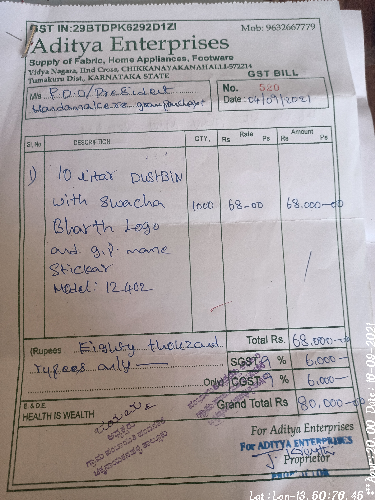 GST IN:29BTDPK6292D1ZI
Mob: 9632667779
Aditya Enterprises
Supply of Fabric, Home Appliances, Footware
Vidya Nagara, IInd Cross, CHIKKANAYAKANAHALLI-572214
Tumakuru Dist, KARNATAKA STATE
GST BILL
M/s P.D.O/President
No. 520
Date: 04/09/2021
Sl.No. DESCRIPTION QTY. Rate Rs Ps Amount Rs Ps
1) 10 litar DUSTBIN
with Swacha 1000 68-00 68.000-00
Bharth Logo
and g.p. name
Sticker
Model: 12402
Total Rs. 68.000-00
(Rupees Eighty thousand
rupees only
SGST 9 % 6,000-
Only) CGST 9 % 6,000-
E. & O.E
Grand Total Rs 80,000-00
HEALTH IS WEALTH
For Aditya Enterprises
For ADITYA ENTERPRISES
Proprietor
PROPRIETOR